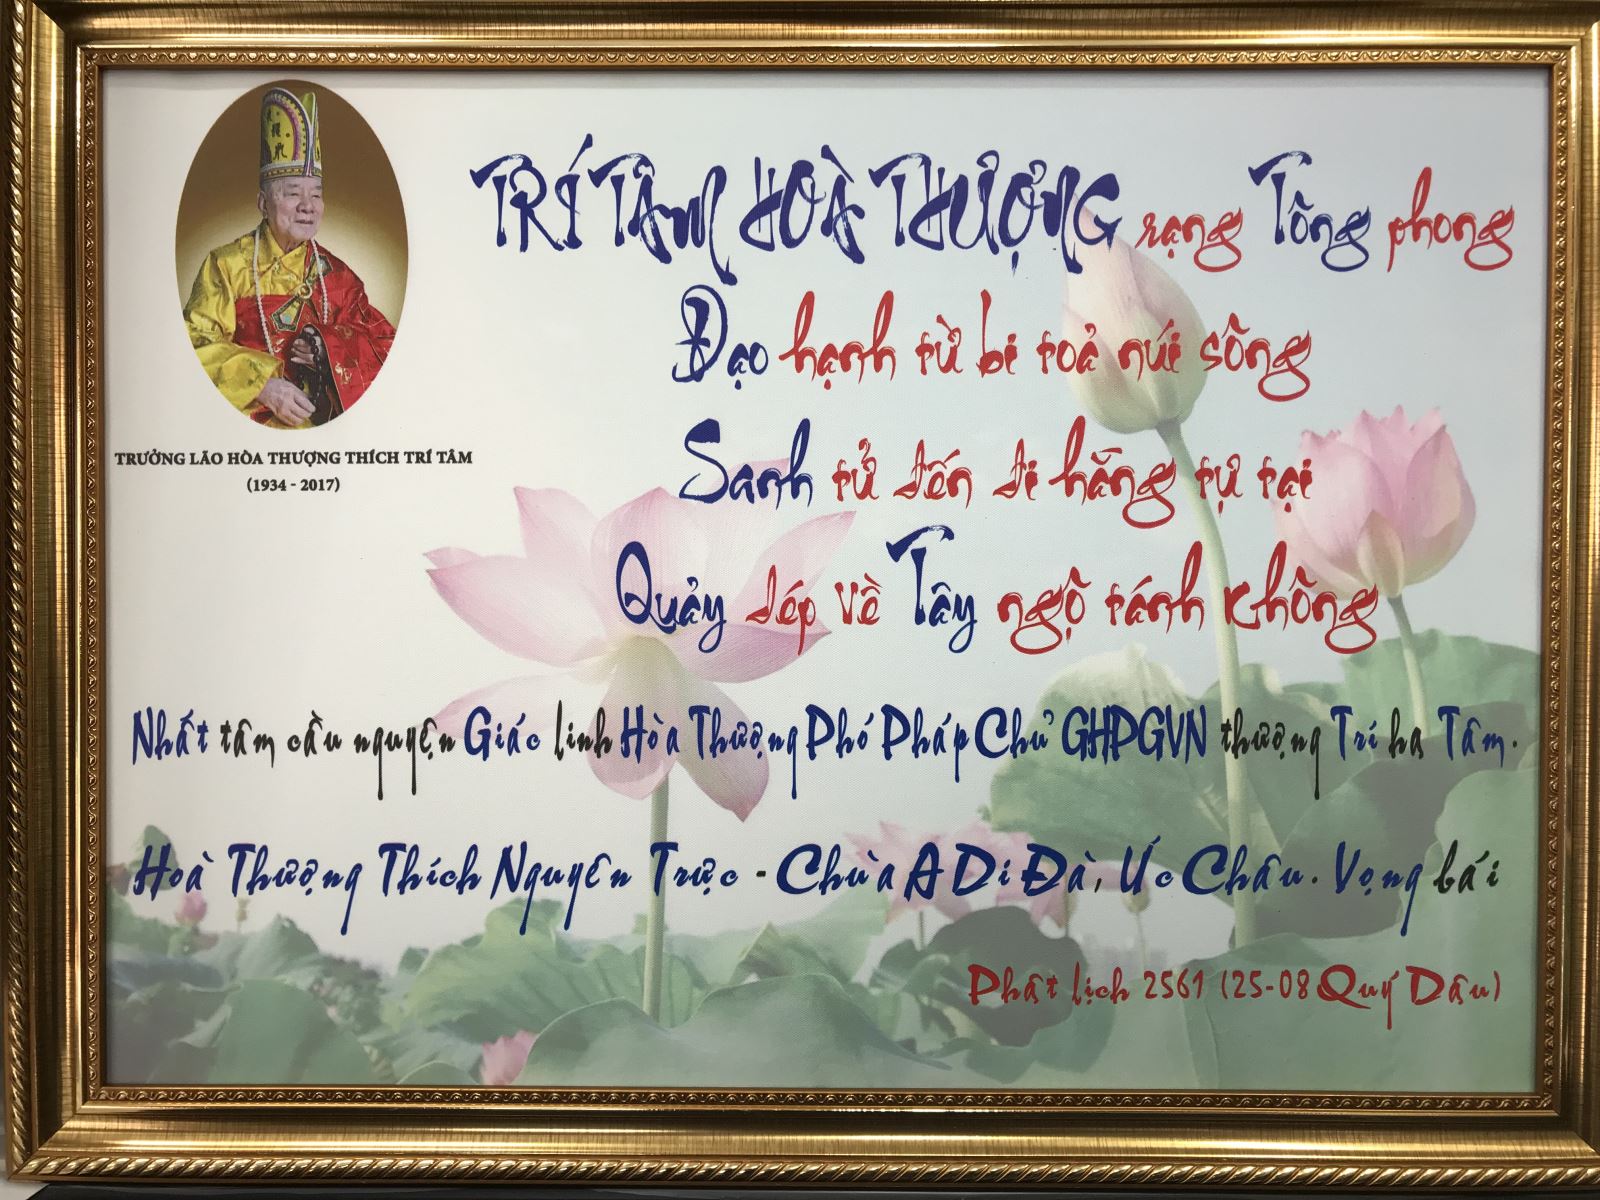 TRÍ TÂM HOÀ THƯỢNG rạng Tông phong
Đạo hạnh từ bi toả núi sông
Sanh tử đến đi hằng tự tại
Quảy dép về Tây ngộ tánh Không
TRƯỞNG LÃO HÒA THƯỢNG THÍCH TRÍ TÂM
(1934 - 2017)
Nhất tâm cầu nguyện Giác linh Hòa Thượng Phó Pháp Chủ GHPGVN thượng Trí hạ Tâm.
Hoà Thượng Thích Nguyên Trực - Chùa A Di Đà, Úc Châu. Vọng bái
Phật lịch 2561 (25-08 Quý Dậu)